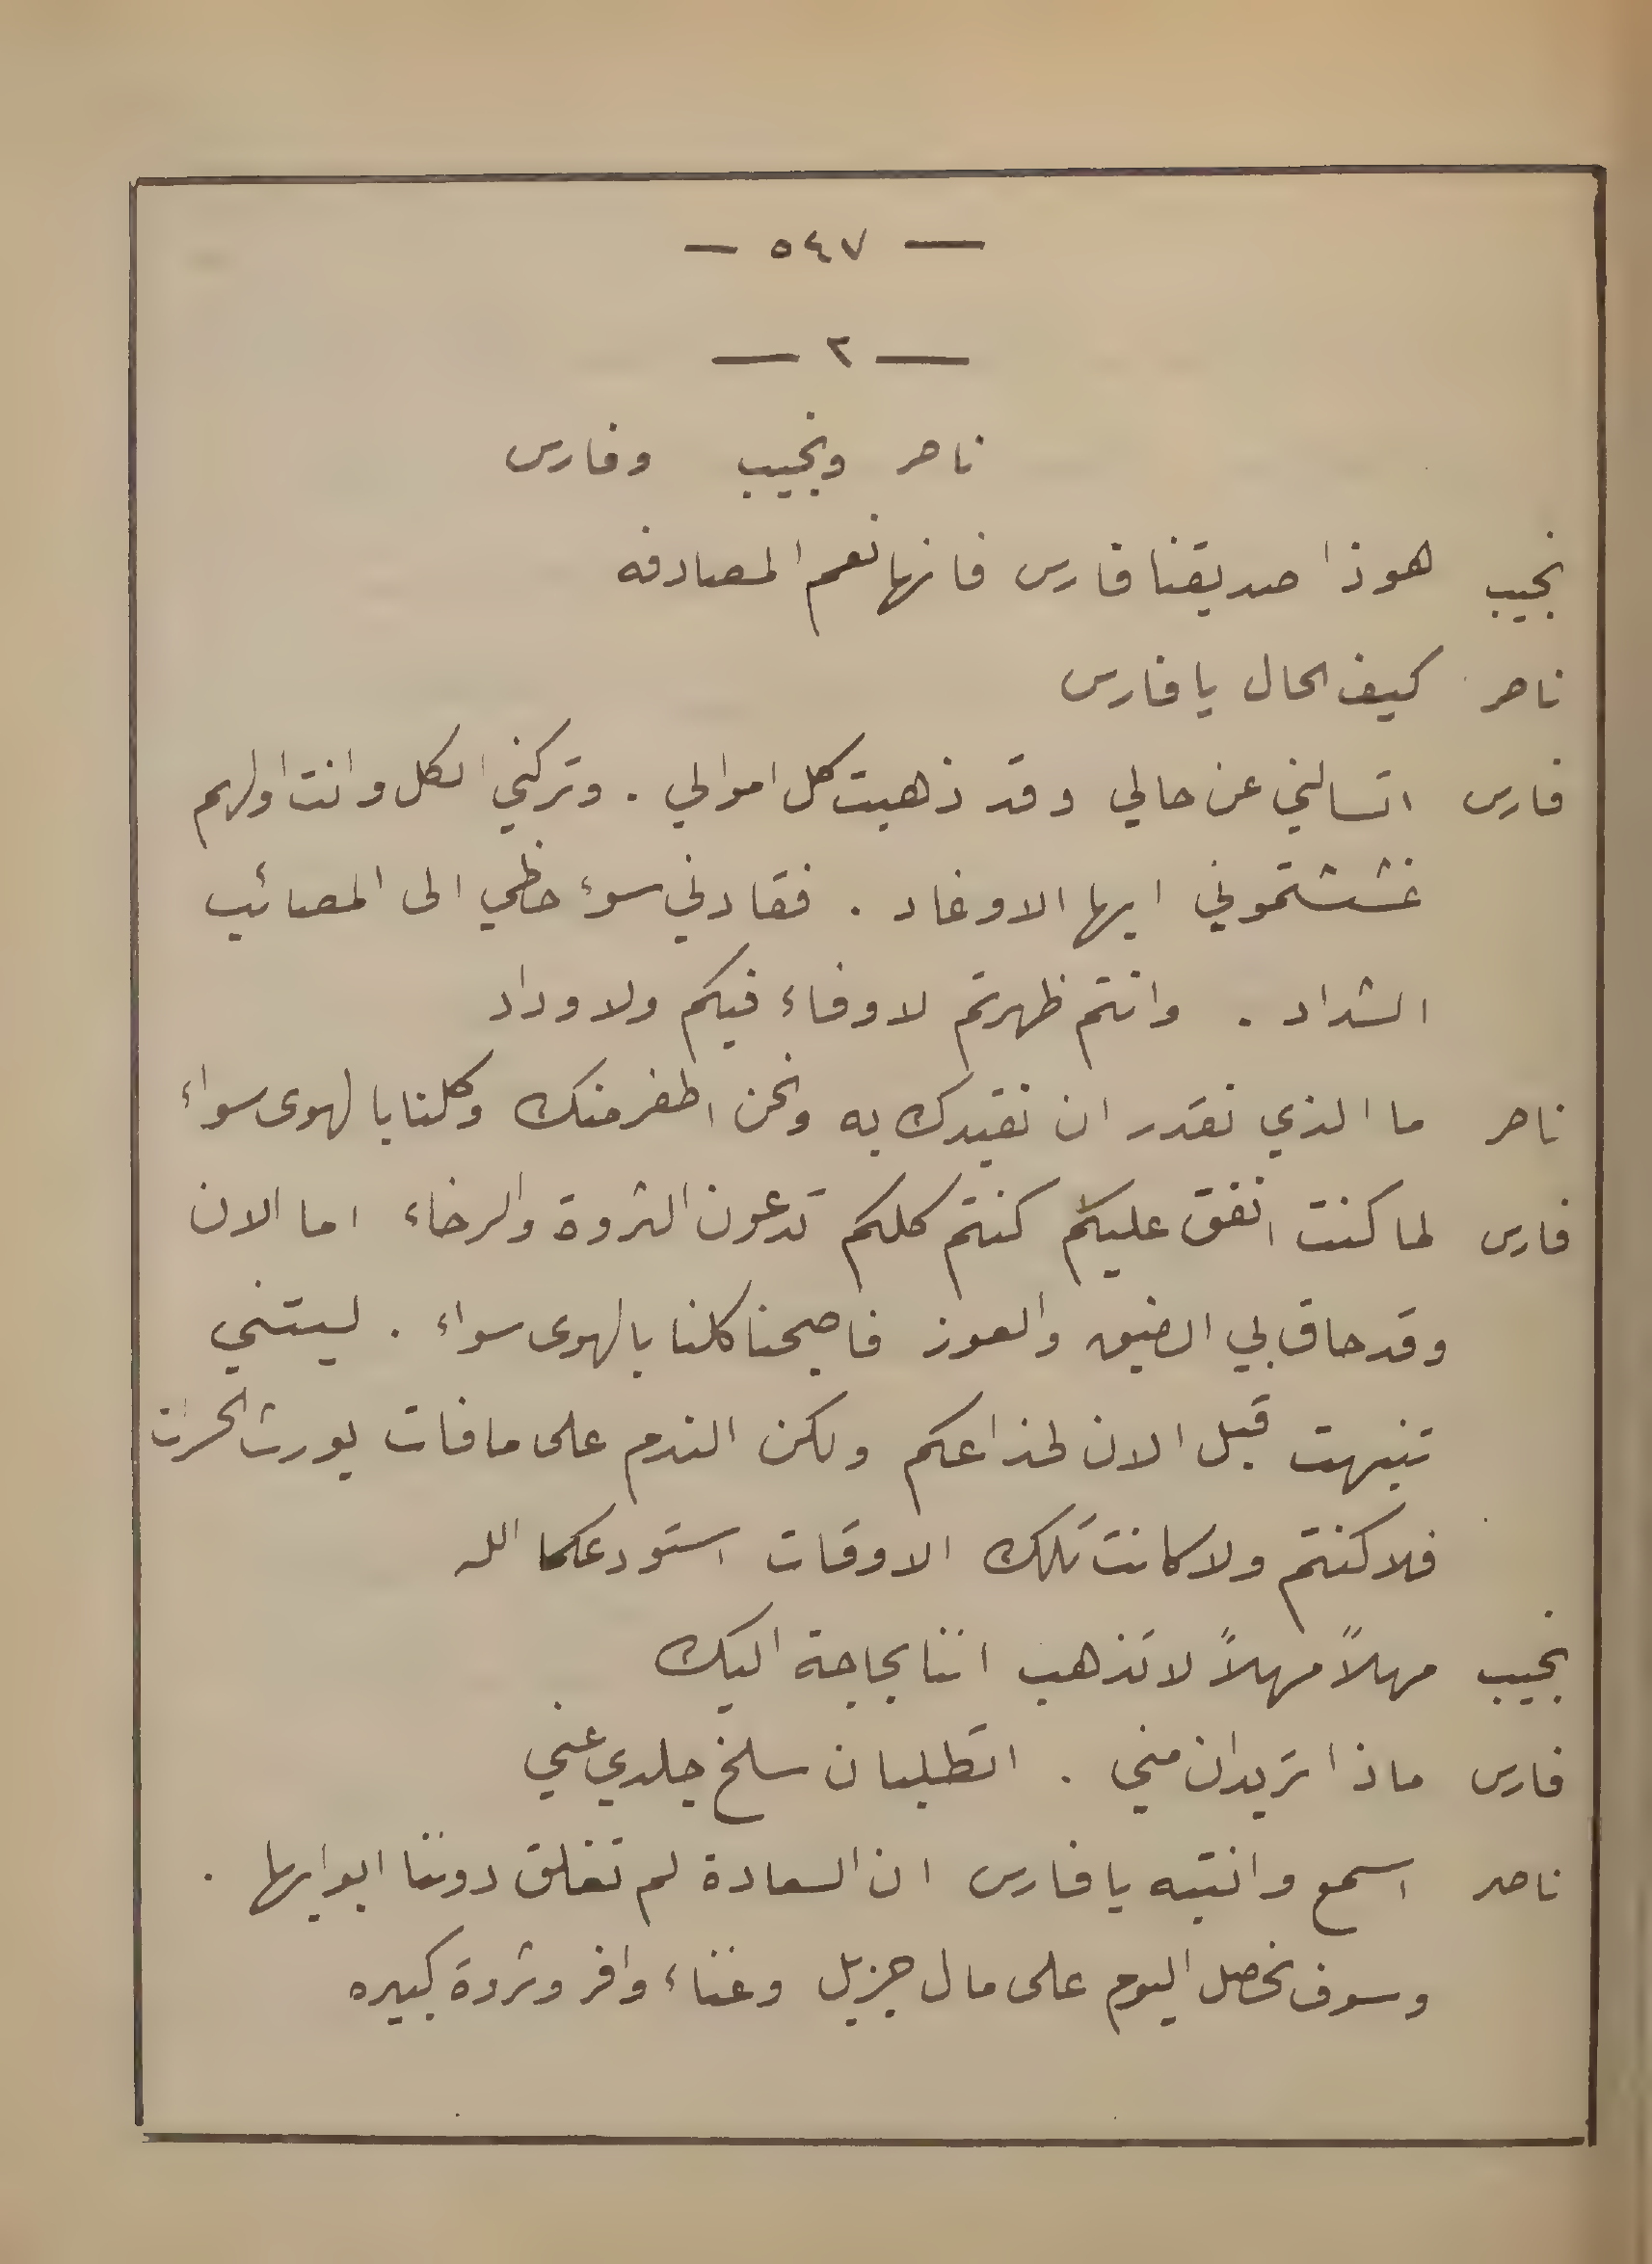 — ٥٤٧ —
— ٢ —
ناصر ونجيب وفارس
نجيب هوذا صديقنا فارس فانها نعم المصادفه
ناصر كيف الحال يا فارس
فارس اتسالني عن حالي وقد ذهبت كل اموالي . وتركني الكل وانت اولهم
غششتموني ايها الاوغاد . فقادني سوء حظي الى المصائب
الشداد . وانتم ظهرتم لا وفاء فيكم ولا وداد
ناصر ما الذي نقدر ان نفيدك به ونحن اصفر منك وكلنا بالهوى سواء
فارس لما كنت انفق عليكم كنتم كلكم تدعون الثروة والرخاء اما الان
وقد حاق بي الضيق والعوز فاصبحنا كلنا بالهوى سواء . ليتني
تنبهت قبل الان لخداعكم ولكن الندم على ما فات يورث الحسرات
فلا كنتم ولا كانت تلك الاوقات استودعكما الله
نجيب مهلاً مهلاً لا تذهب اننا بحاجة اليك
فارس ماذا تريدان مني . اتطلبان سلخ جلدي عني
ناصر اسمع وانتبه يا فارس ان السعادة لم تغلق دوننا ابوابها .
وسوف نحصل اليوم على مال جزيل وغناء وافر وثروة كبيره